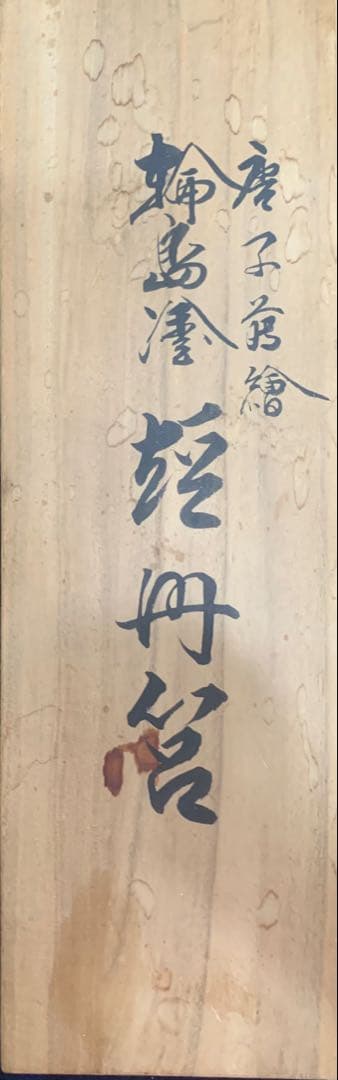 唐子蒔繪
輪島塗 短冊筥